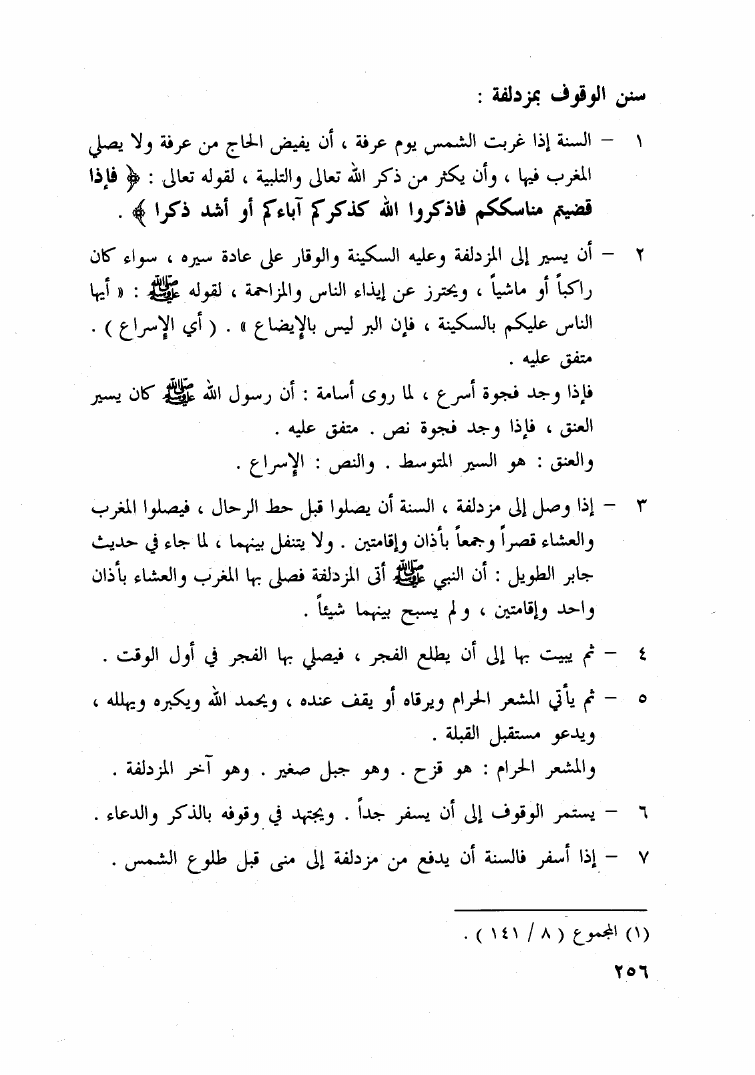 سنن الوقوف بمزدلفة :
١ – السنة إذا غربت الشمس يوم عرفة ، أن يفيض الحاج من عرفة ولا يصلي
المغرب فيها ، وأن يكثر من ذكر الله تعالى والتلبية ، لقوله تعالى : ﴿ فإذا
قضيتم مناسككم فاذكروا الله كذكركم آباءكم أو أشد ذكرا ﴾ .
٢ – أن يسير إلى المزدلفة وعليه السكينة والوقار على عادة سيره ، سواء كان
راكباً أو ماشياً ، ويحترز عن إيذاء الناس والمزاحمة ، لقوله ﷺ : « أيها
الناس عليكم بالسكينة ، فإن البر ليس بالإيضاع » . ( أي الإسراع ) .
متفق عليه .
فإذا وجد فجوة أسرع ، لما روى أسامة : أن رسول الله ﷺ كان يسير
العنق ، فإذا وجد فجوة نص . متفق عليه .
والعنق : هو السير المتوسط . والنص : الإسراع .
٣ – إذا وصل إلى مزدلفة ، السنة أن يصلوا قبل حط الرحال ، فيصلوا المغرب
والعشاء قصراً وجمعاً بأذان وإقامتين . ولا يتنفل بينهما ، لما جاء في حديث
جابر الطويل : أن النبي ﷺ أتى المزدلفة فصلى بها المغرب والعشاء بأذان
واحد وإقامتين ، ولم يسبح بينهما شيئاً .
٤ – ثم يبيت بها إلى أن يطلع الفجر ، فيصلي بها الفجر في أول الوقت .
٥ – ثم يأتي المشعر الحرام ويرقاه أو يقف عنده ، ويحمد الله ويكبره ويهلله ،
ويدعو مستقبل القبلة .
والمشعر الحرام : هو قزح . وهو جبل صغير . وهو آخر المزدلفة .
٦ – يستمر الوقوف إلى أن يسفر جداً . ويجتهد في وقوفه بالذكر والدعاء .
٧ – إذا أسفر فالسنة أن يدفع من مزدلفة إلى منى قبل طلوع الشمس .
(١) المجموع ( ٨ / ١٤١ ) .
٢٥٦